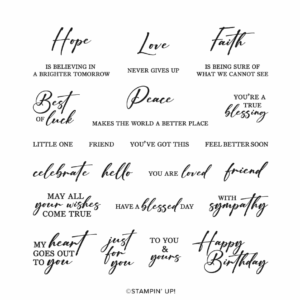 Hope
IS BELIEVING IN
A BRIGHTER TOMORROW
Love
NEVER GIVES UP
Faith
IS BEING SURE OF
WHAT WE CANNOT SEE
Best
OF luck
Peace
MAKES THE WORLD A BETTER PLACE
YOU'RE A
TRUE
blessing
LITTLE ONE
FRIEND
YOU'VE GOT THIS
FEEL BETTER SOON
celebrate
hello
YOU ARE loved
friend
MAY ALL
your wishes
COME TRUE
HAVE A blessed DAY
WITH
sympathy
MY heart
GOES OUT
TO you
just
for
you
TO YOU
&
yours
Happy
Birthday
©STAMPIN' UP!